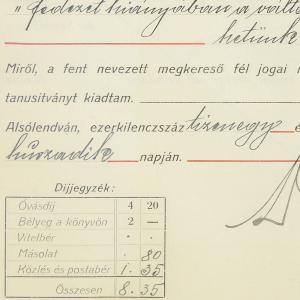 "fedezet hiányában a vált
hetünk
Miről, a fent nevezett megkereső fél jogai
tanusítványt kiadtam.
Alsólendván, ezerkilenczszáz tizenegy é
huszadik napján.
Díjjegyzék:
Óvásdíj 4 20
Bélyeg a könyvön 2 —
Vitelbér . .
Másolat . 80
Közlés és postabér 1. 35
Összesen 8. 35